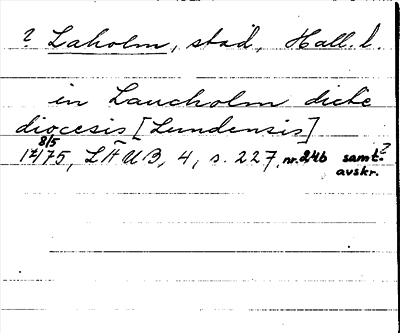 ? Laholm, stad, Hall. l.
in Laucholm dicte
diocesis [Lundensis]
8/5
1475, LÄUB, 4, s. 227, nr. 246 samt. ?
avskr.